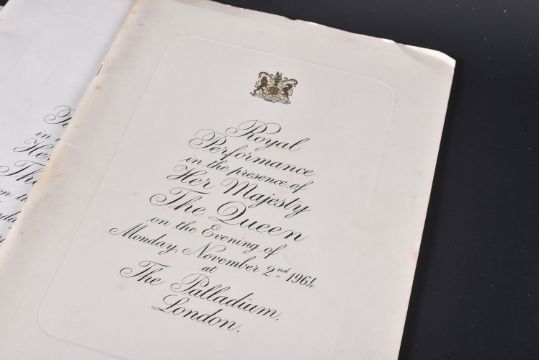 Royal
Performance
in the presence of
Her Majesty
The Queen
on the Evening of
Monday, November 2nd 1964
at
The Palladium,
London.